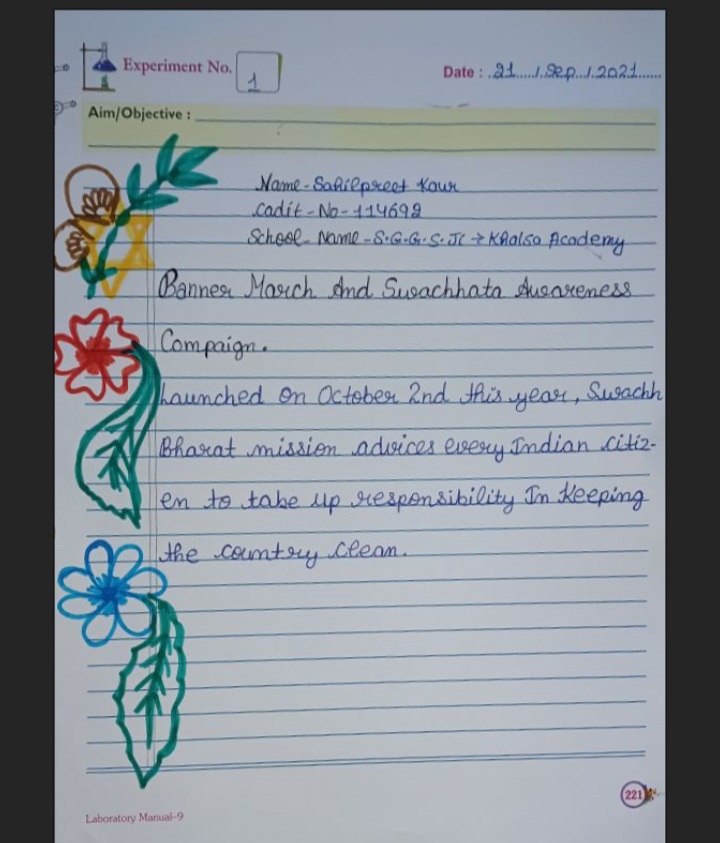 Experiment No. 1
Date : 21 / Sep / 2021
Aim/Objective :
Name - Sahilpreet Kour
Cadit - No - 114692
School - Name - S.G.G.S. Jc → Khalsa Academy
Banner March And Swachhata Awareness
Compaign.
Launched on October 2nd this year, Swachh
Bharat mission advices every Indian citiz-
en to take up responsibility In Keeping
the country clean.
221
Laboratory Manual-9